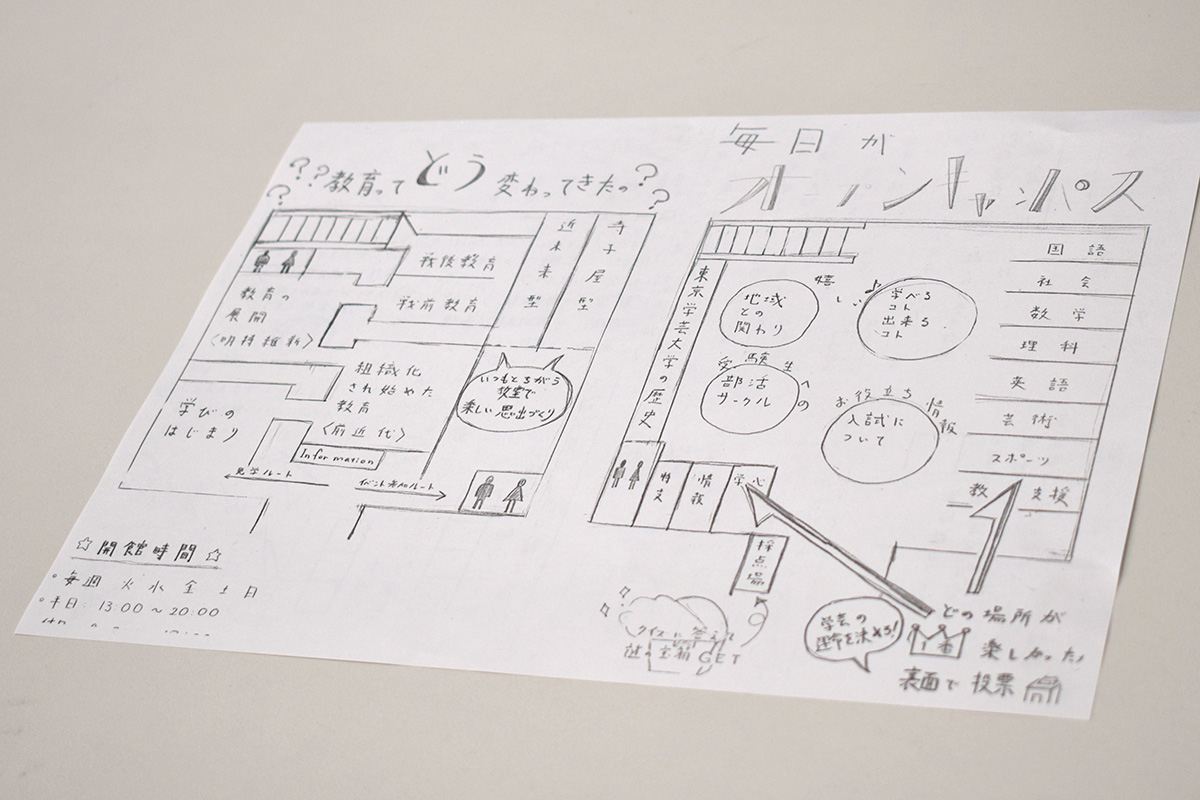 ??教育ってどう変わってきたの??
近未来型
寺子屋型
戦後教育
戦前教育
教育の
展開
〈明治維新〉
組織化
され始めた
教育
〈前近代〉
学びの
はじまり
いつもとちがう
教室で
楽しい思出づくり
Information
見学ルート
イベント参加ルート
☆開館時間☆
・毎週 火水金土日
・平日: 13:00～20:00
毎日が
オープンキャンパス
東京学芸大学の歴史
地域
との
関わり
嬉しい
学べる
コト
出来る
コト
受験生への
部活
サークル
お役立ち情報
入試に
ついて
国語
社会
数学
理科
英語
芸術
スポーツ
教 支援
特支
情報
学心
採点場
クイズに答えて
謎の宝箱GET
学芸の
運命を決めろ!
どの場所が
1番
楽しかった!
表面で投票